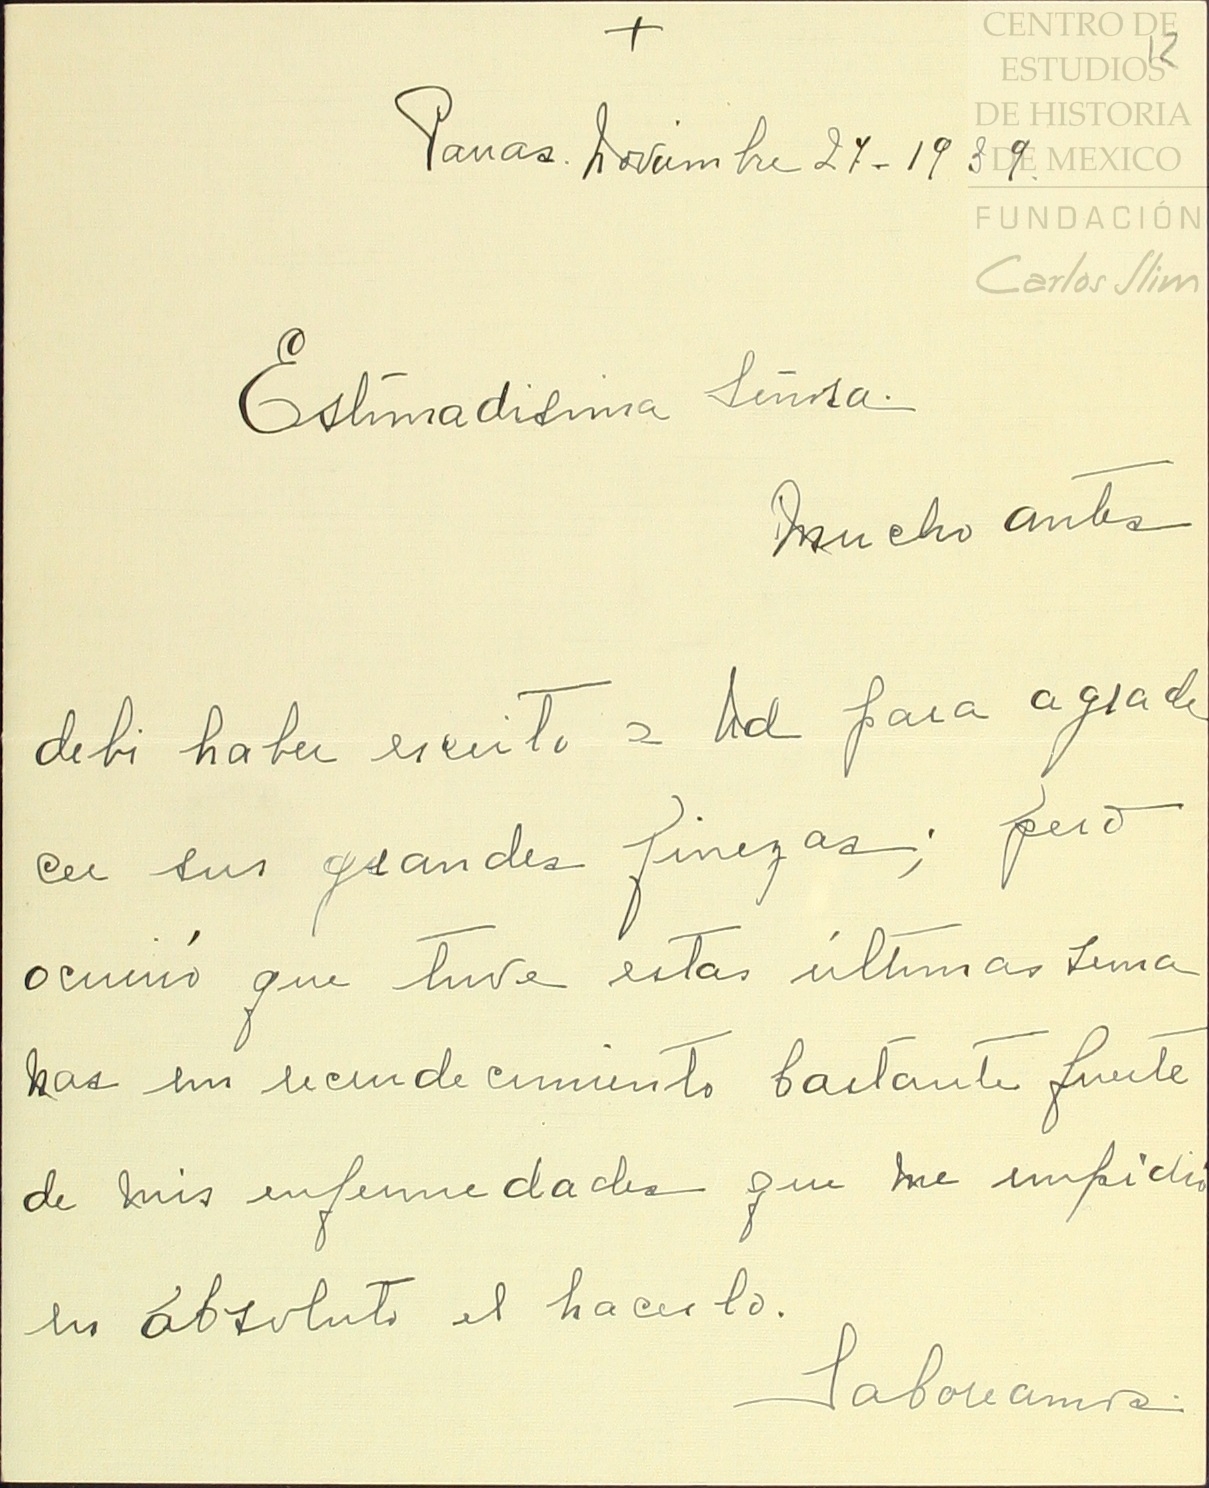 +
CENTRO DE
ESTUDIOS
DE HISTORIA
DE MEXICO
FUNDACIÓN
Carlos Slim
12
Parras. Noviembre 27-1939.
Estimadisima Señora.
Mucho antes
debi haber escrito a Ud para agrade
cer sus grandes finezas; pero
ocurrió que tuve estas últimas sema
nas un recrudecimiento bastante fuerte
de mis enfermedades que me impidió
en absoluto el hacerlo.
Saboreamos.